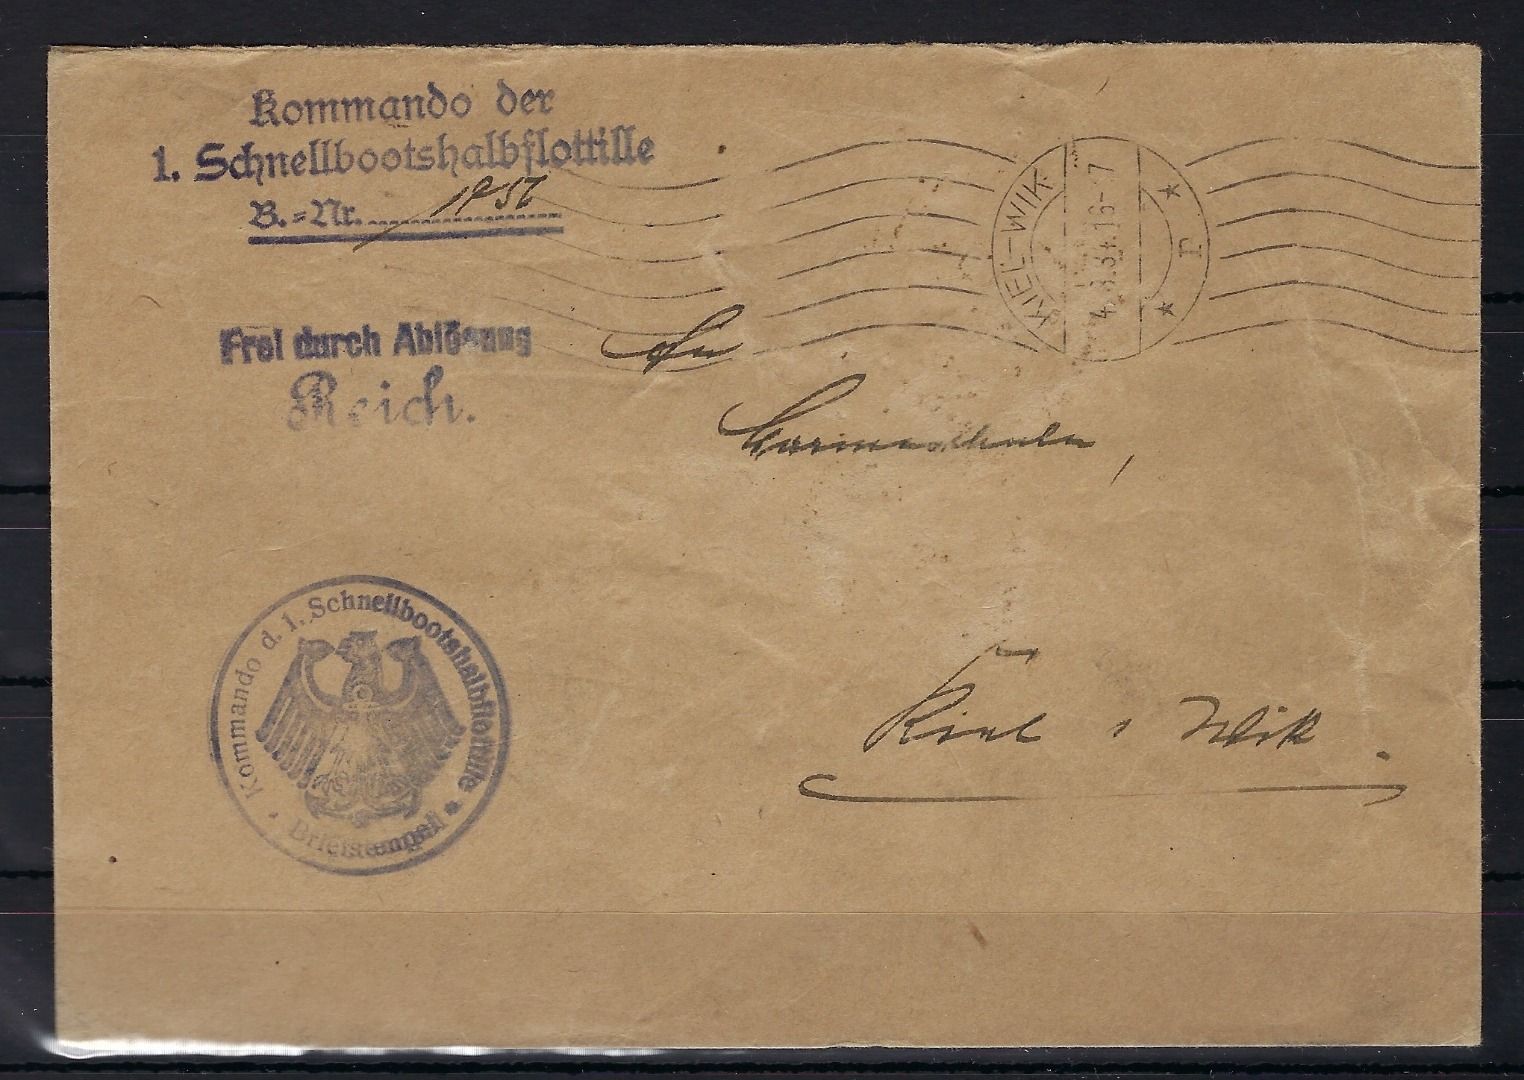 Kommando der
1. Schnellbootshalbflottille
B.-Nr. 1952
KIEL-WIK
4.3.34.16-17
* n *
Frei durch Ablösung
Reich.
An
Marineschule,
Kiel, Wik.
Kommando d. 1. Schnellbootshalbflottille
* Briefstempel *